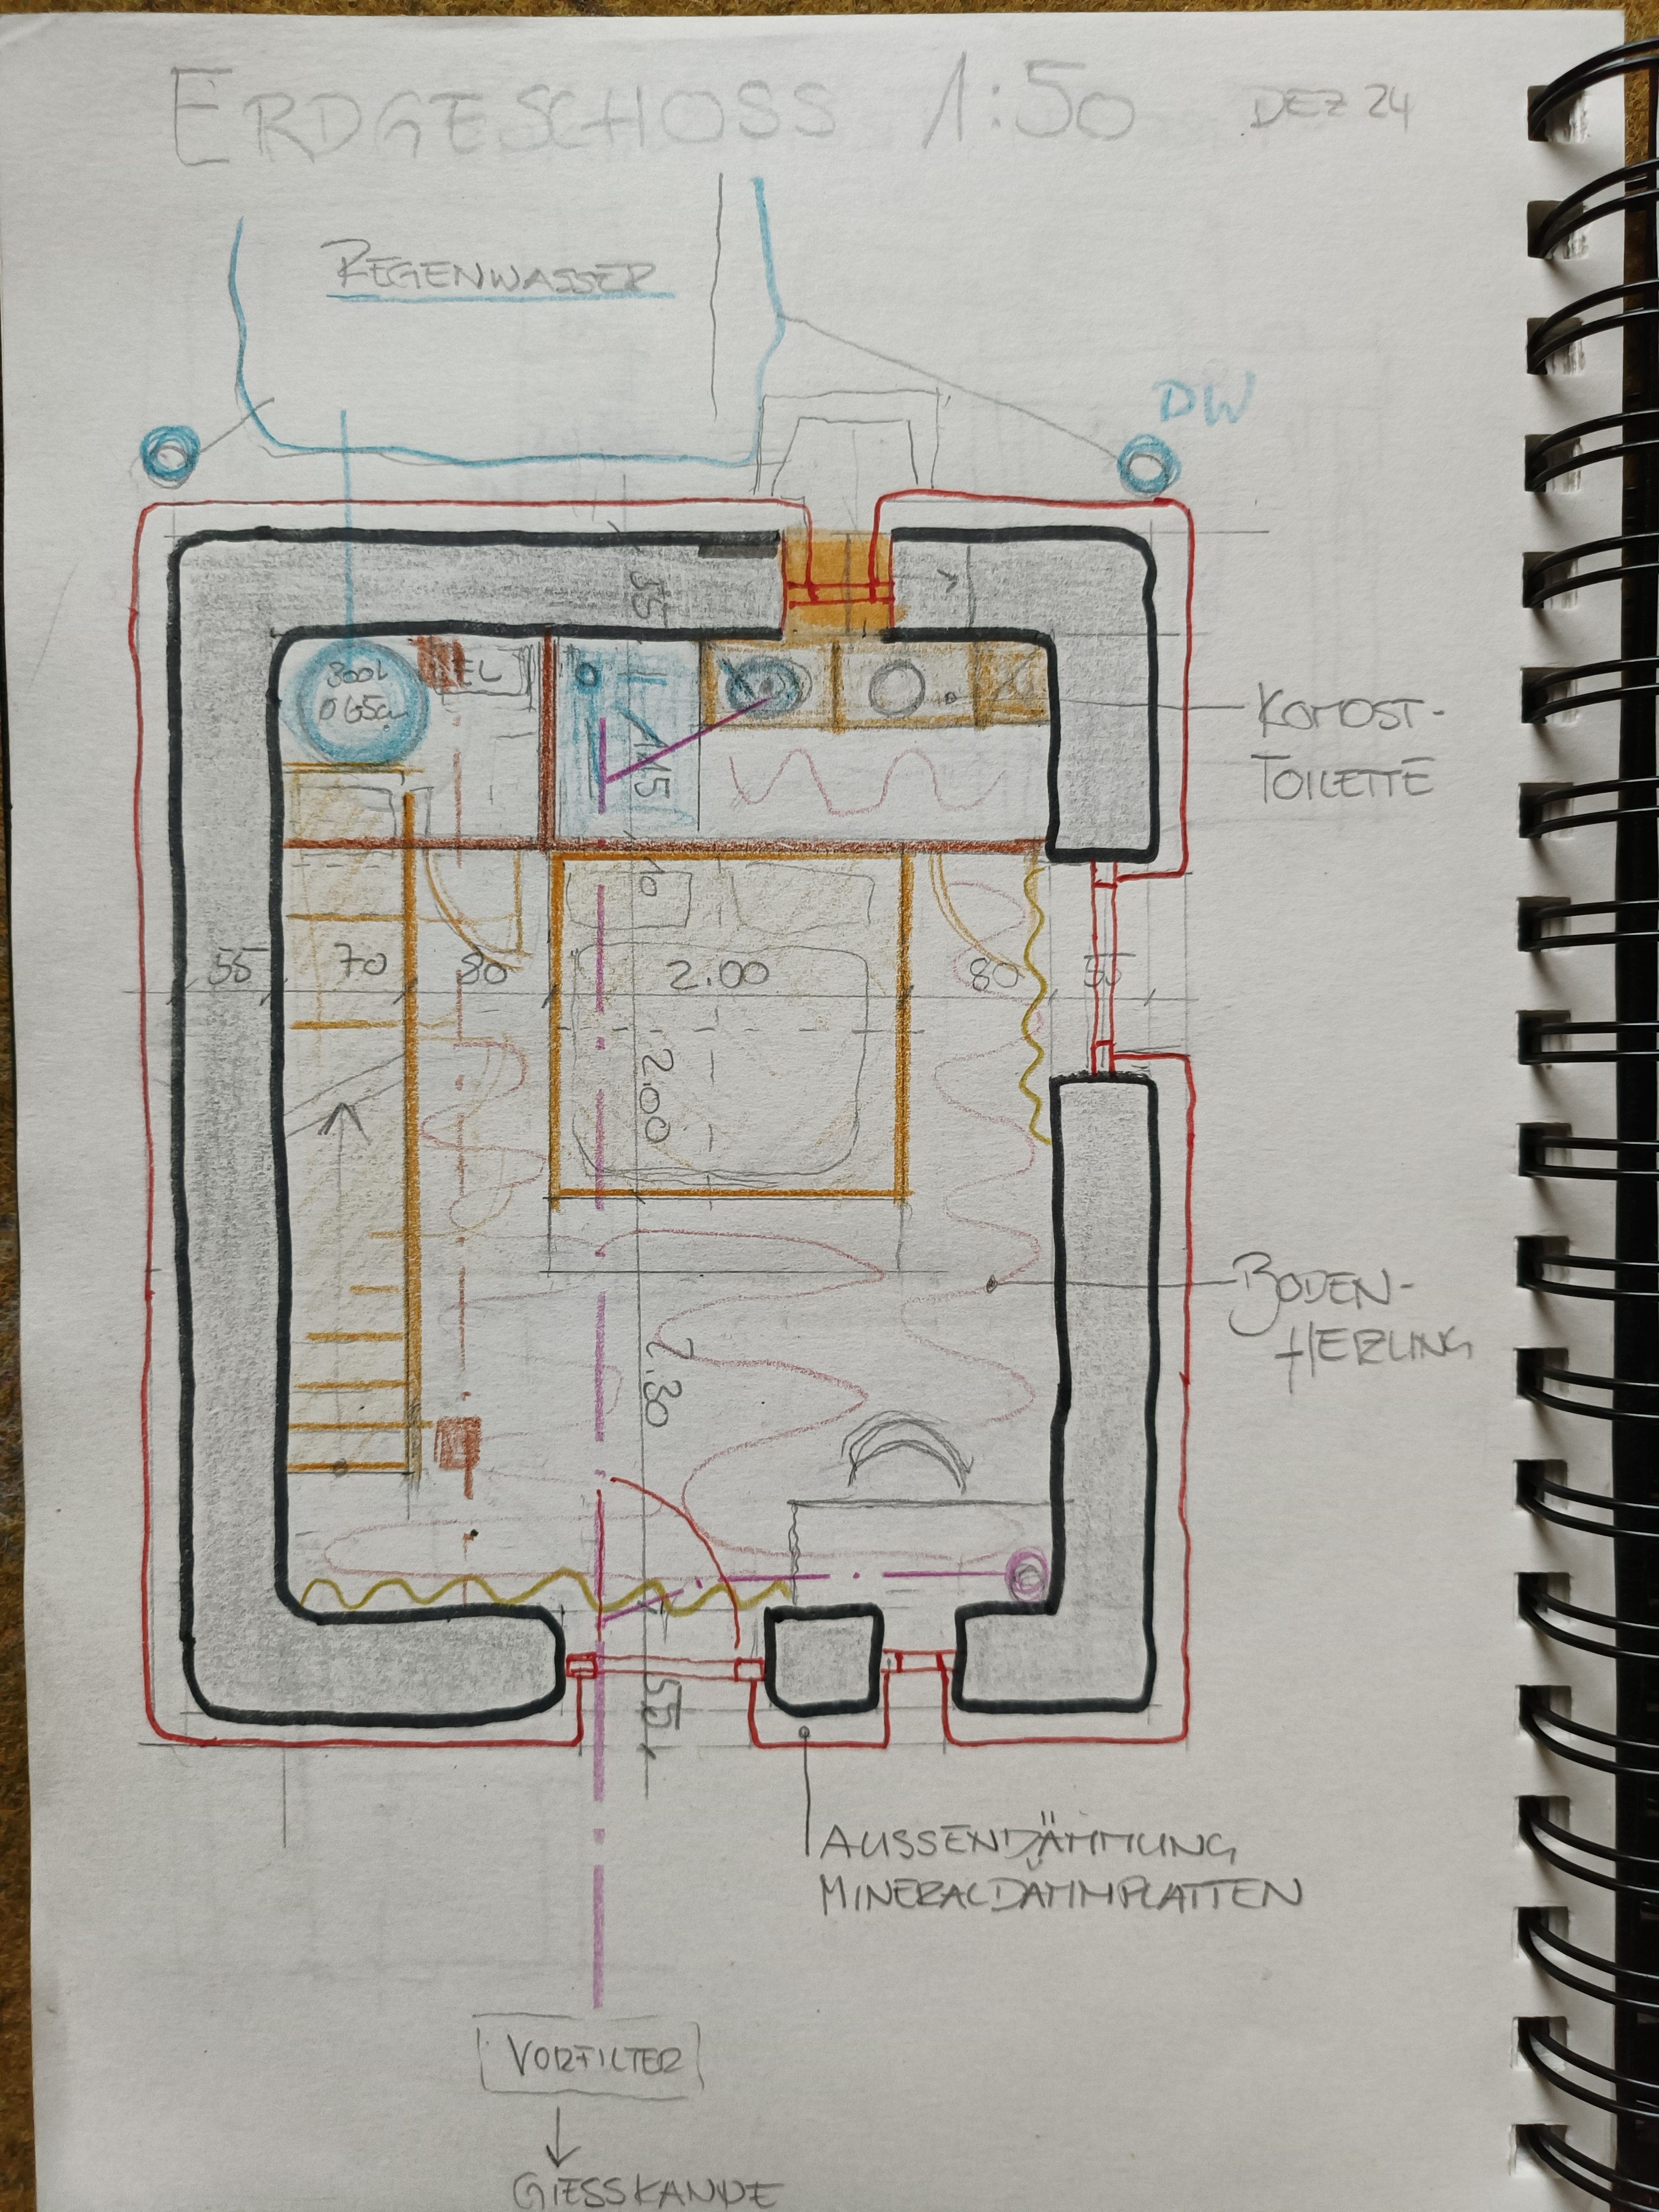 ERDGESCHOSS 1:50 DEZ 24
REGENWASSER
DW
55
300L
Ø 65
EL
1.15
KOMOST-
TOILETTE
10
55 70 80 2.00 80 55
2.00
BODEN-
HEIZUNG
2.30
55
AUSSENDÄMMUNG
MINERALDÄMMPLATTEN
VORFILTER
GIESSKANNE